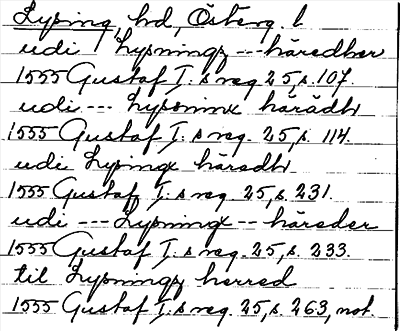 Lysing hd, Österg. l.
udi Lysningz --- häredher
1555 Gustaf I:s reg 25, s. 107.
udi --- Lyssninx härädh
1555 Gustaf I:s reg. 25, s. 114.
udi Lysingx häredh
1555 Gustaf I:s reg. 25, s. 231.
udi --- Lysningx -- häreder
1555 Gustaf I:s reg. 25, s. 233.
til Lysningz herred
1555 Gustaf I:s reg. 25, s. 263, not.